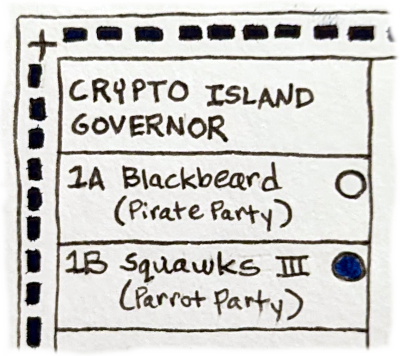 CRYPTO ISLAND
GOVERNOR
1A Blackbeard
(Pirate Party)
1B Squawks III
(Parrot Party)